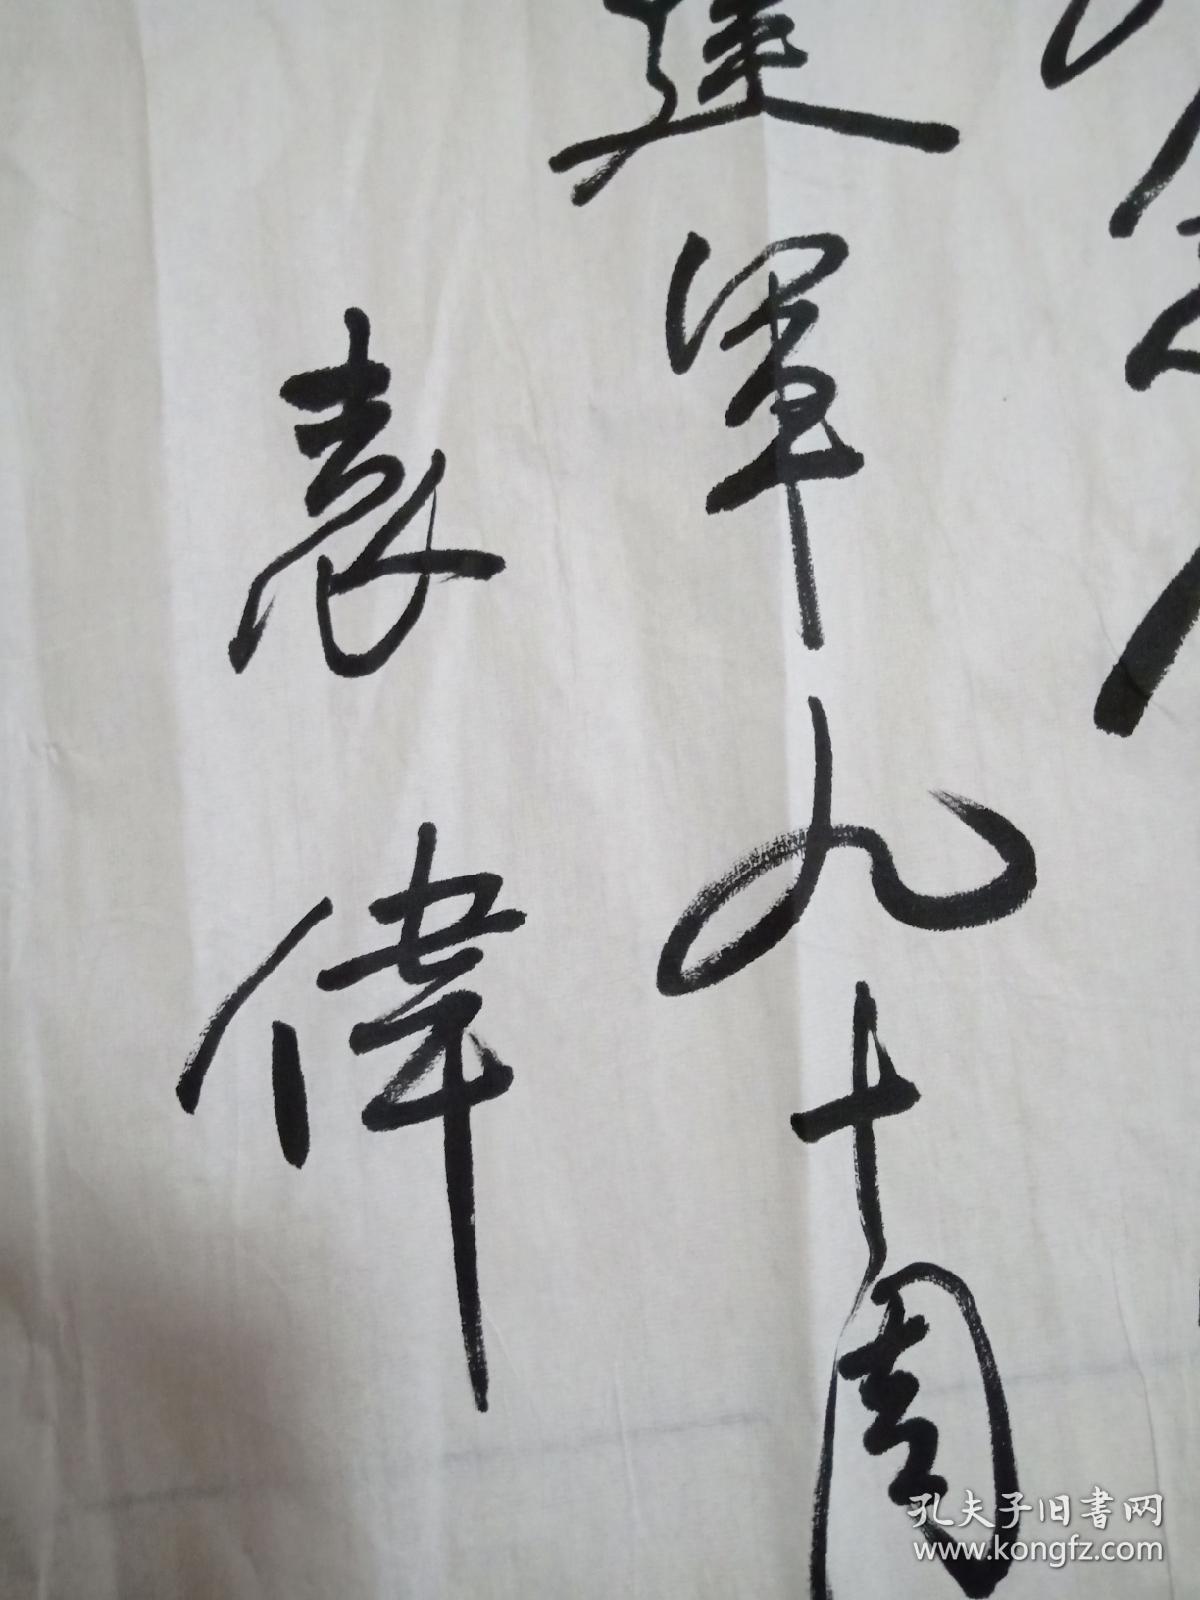 建軍九十周
袁偉
孔夫子旧書网
www.kongfz.com